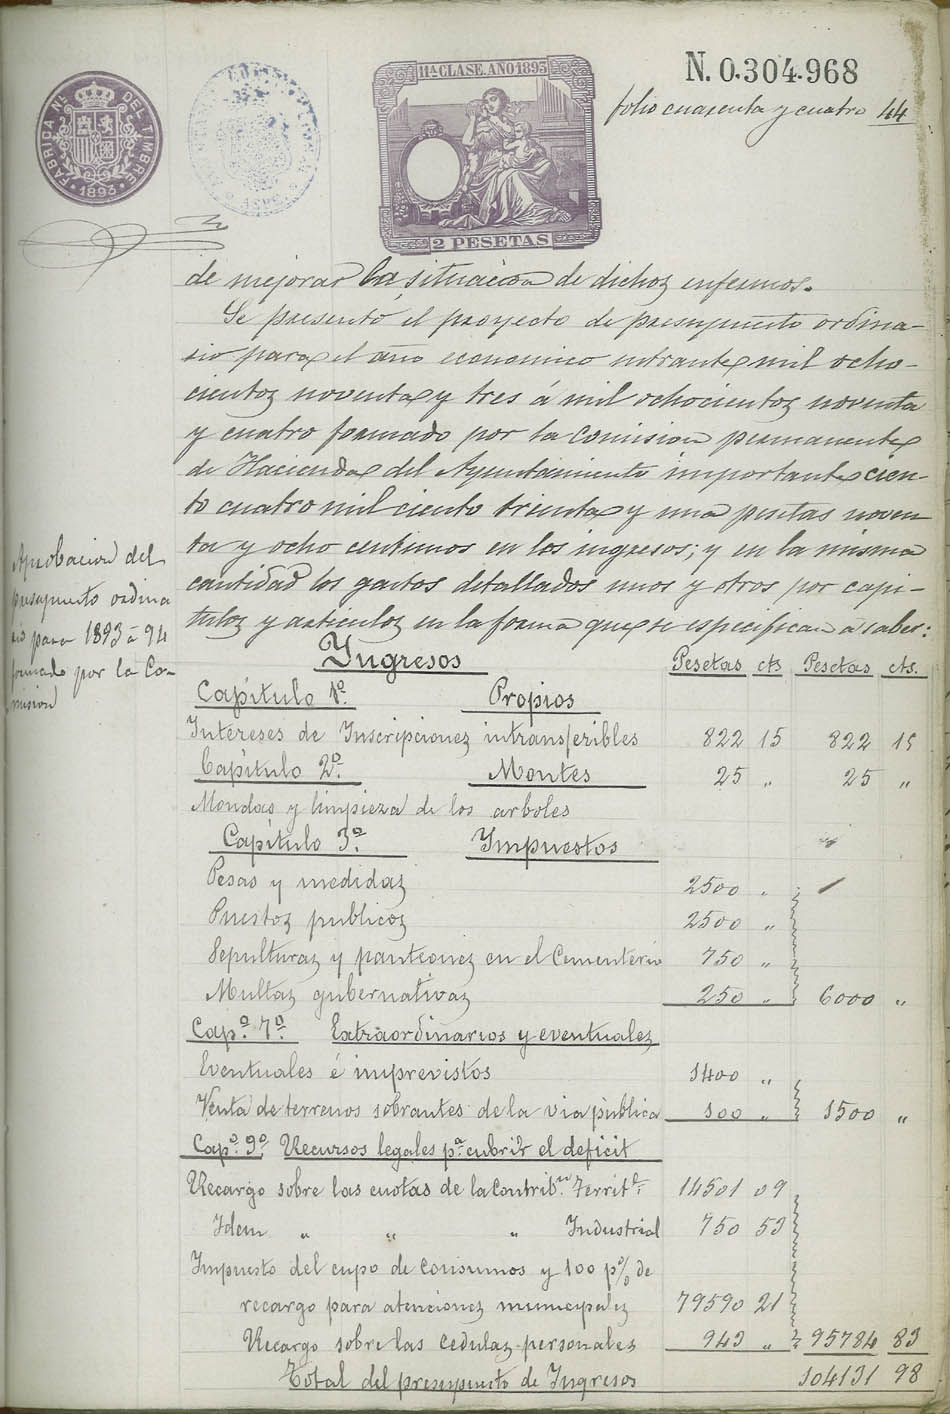 N. 0.304.968
folio cuarenta y cuatro 44
FABRICA NL. DEL TIMBRE
1893
11ª CLASE. AÑO 1893
2 PESETAS
de mejorar la situacion de dichos enfermos.
Se presentó el proyecto de presupuesto ordina-
rio para el año economico entrante mil ocho-
cientos noventa y tres á mil ochocientos noventa
y cuatro formado por la Comision permanente
de Hacienda del Ayuntamiento importante cien-
to cuatro mil ciento treinta y una pesetas noven
ta y ocho centimos en los ingresos; y en la misma
cantidad los gastos detallados unos y otros por capi-
tulos y articulos en la forma que se especifican á saber:
Aprobacion del
presupuesto ordina
rio para 1893 á 94
formado por la Co-
mision
Ingresos Pesetas cts Pesetas cts.
Capítulo 1º. Propios
Intereses de Inscripciones intransferibles 822 15 822 15
Capítulo 2º. Montes 25 „ 25 „
Mondas y limpieza de los arboles
Capítulo 3º. Impuestos
Pesas y medidas 2500 „
Puestos publicos 2500 „
Sepulturas y panteones en el Cementerio 750 „
Multas gubernativas 250 „ 6000 „
Capº. 7º. Extraordinarios y eventuales
Eventuales é imprevistos 1400 „
Venta de terrenos sobrantes de la via pública 100 „ 1500 „
Capº. 9º. Recursos legales pª. cubrir el deficit
Recargo sobre las cuotas de la Contribon. Territl. 14501 09
Idem „ „ „ Industrial 750 53
Impuesto del cupo de consumos y 100 p% de
recargo para atenciones municipales 79590 21
Recargo sobre las cedulas personales 943 „ 95784 83
Total del presupuesto de Ingresos 104131 98